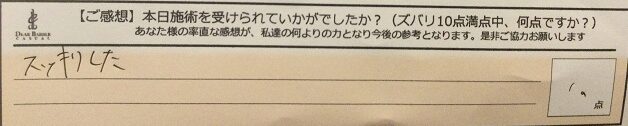 【ご感想】本日施術を受けられていかがでしたか？（ズバリ10点満点中、何点ですか？）
あなた様の率直な感想が、私達の何よりの力となり今後の参考となります。是非ご協力お願いします
DEAR BARBER
CASUAL
スッキリした
10点